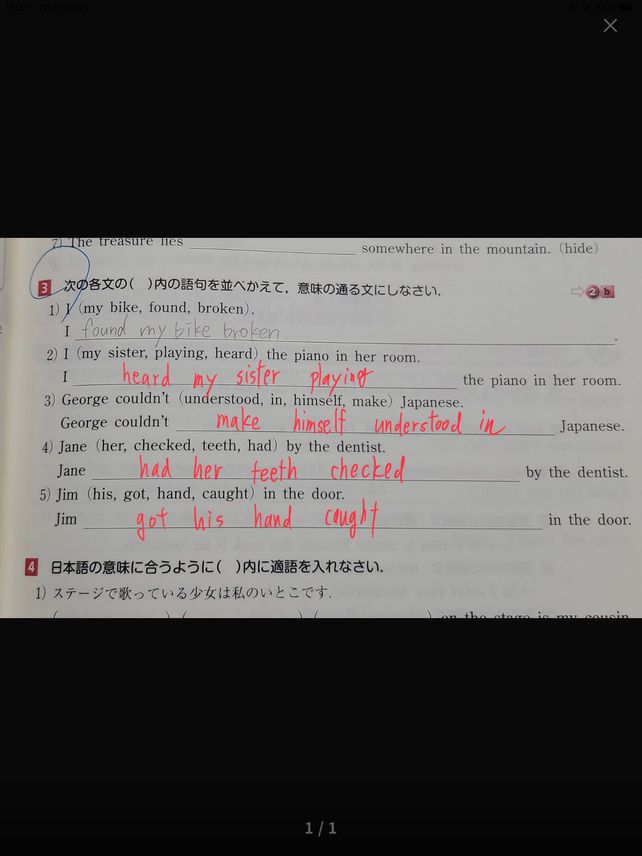 7) The treasure lies ____ somewhere in the mountain. (hide)
3 次の各文の( )内の語句を並べかえて，意味の通る文にしなさい. ⇨ 2 b
1) I (my bike, found, broken).
I found my bike broken.
2) I (my sister, playing, heard) the piano in her room.
I heard my sister playing the piano in her room.
3) George couldn't (understood, in, himself, make) Japanese.
George couldn't make himself understood in Japanese.
4) Jane (her, checked, teeth, had) by the dentist.
Jane had her teeth checked by the dentist.
5) Jim (his, got, hand, caught) in the door.
Jim got his hand caught in the door.
4 日本語の意味に合うように( )内に適語を入れなさい.
1) ステージで歌っている少女は私のいとこです.
( ) ( ) ( ) on the stage is my cousin
1 / 1